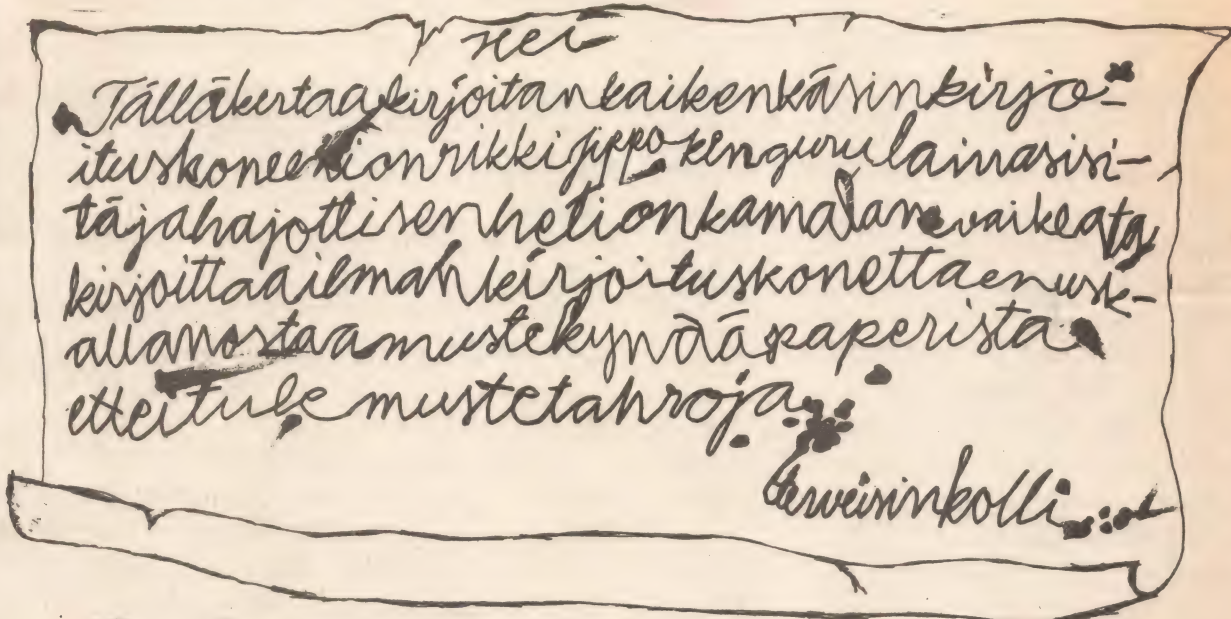 Hei
Tälläkertaakirjoitankaikenkäsinkirjo-
ituskoneenionrikkijippo-kengurulainasisi-
täjahajottisenhetionkamalanvaikeata
kirjoittaailmankirjoituskonettaenusk-
allanostaamustekynääpaperista
etteitulemustetahroja
terveisinkolli